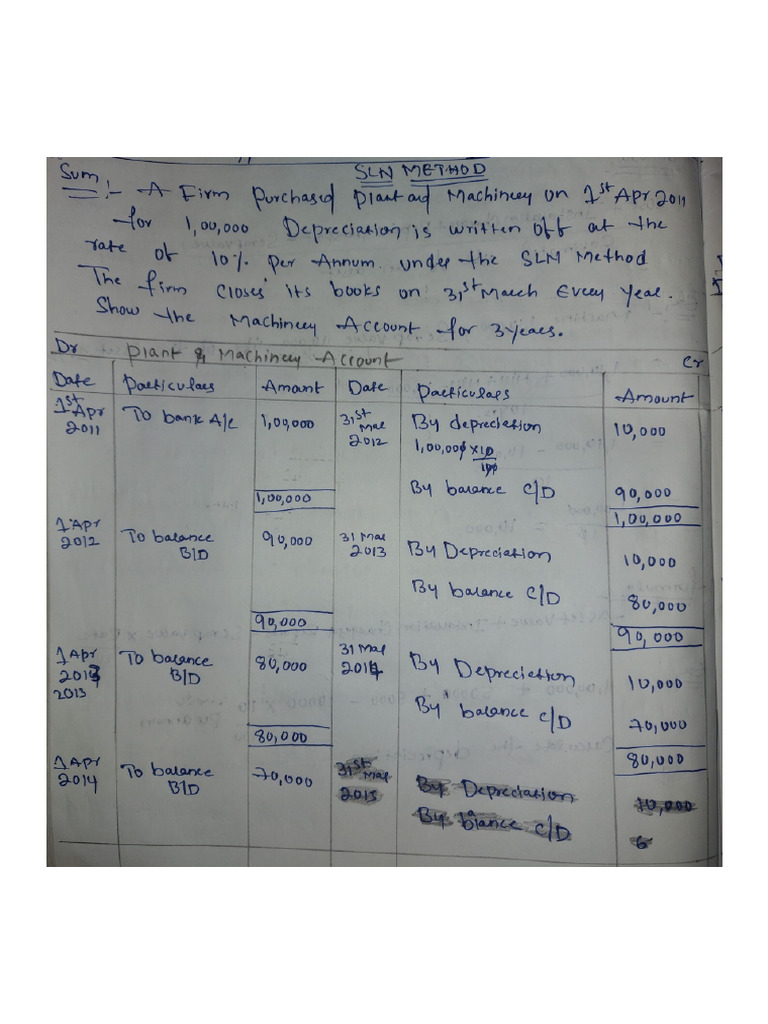 SLN METHOD
Sum :- A Firm purchased plant and Machinery on 1st Apr 2011
for 1,00,000 Depreciation is written off at the
rate of 10% per Annum. under the SLM Method
The firm closes its books on 31st March Every year.
Show the Machinery Account for 3 years.
Dr Plant & Machinery Account Cr
Date Particulars Amount Date Particulars Amount
1st Apr 2011 To bank A/c 1,00,000 31st Mar 2012 By depreciation 10,000
1,00,000 x 10/100
By balance C/D 90,000
1,00,000 1,00,000
1 Apr 2012 To balance B/D 90,000 31 Mar 2013 By Depreciation 10,000
By balance C/D 80,000
90,000 90,000
1 Apr 2013 To balance B/D 80,000 31 Mar 2014 By Depreciation 10,000
2013
By balance C/D 70,000
80,000 80,000
1 Apr 2014 To balance B/D 70,000 31st Mar 2015 By Depreciation 10,000
By blance C/D 6